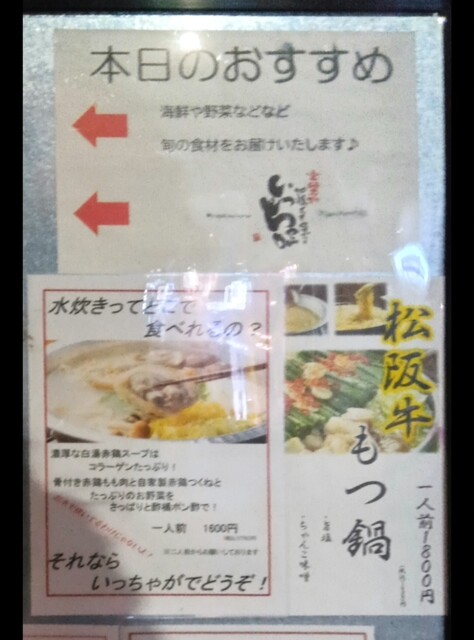 本日のおすすめ
海鮮や野菜などなど
旬の食材をお届けいたします♪
いっちゃが
水炊きってどこで
食べれるの？
濃厚な白湯赤鶏スープは
コラーゲンたっぷり！
骨付き赤鶏もも肉と自家製赤鶏つくねと
たっぷりのお野菜を
さっぱりと酢橘ポン酢で！
一人前 1600円
※二人前からお願いしております
それなら
いっちゃがでどうぞ！
松阪牛
もつ鍋
・旨塩
・ちゃんこ味噌
一人前1800円